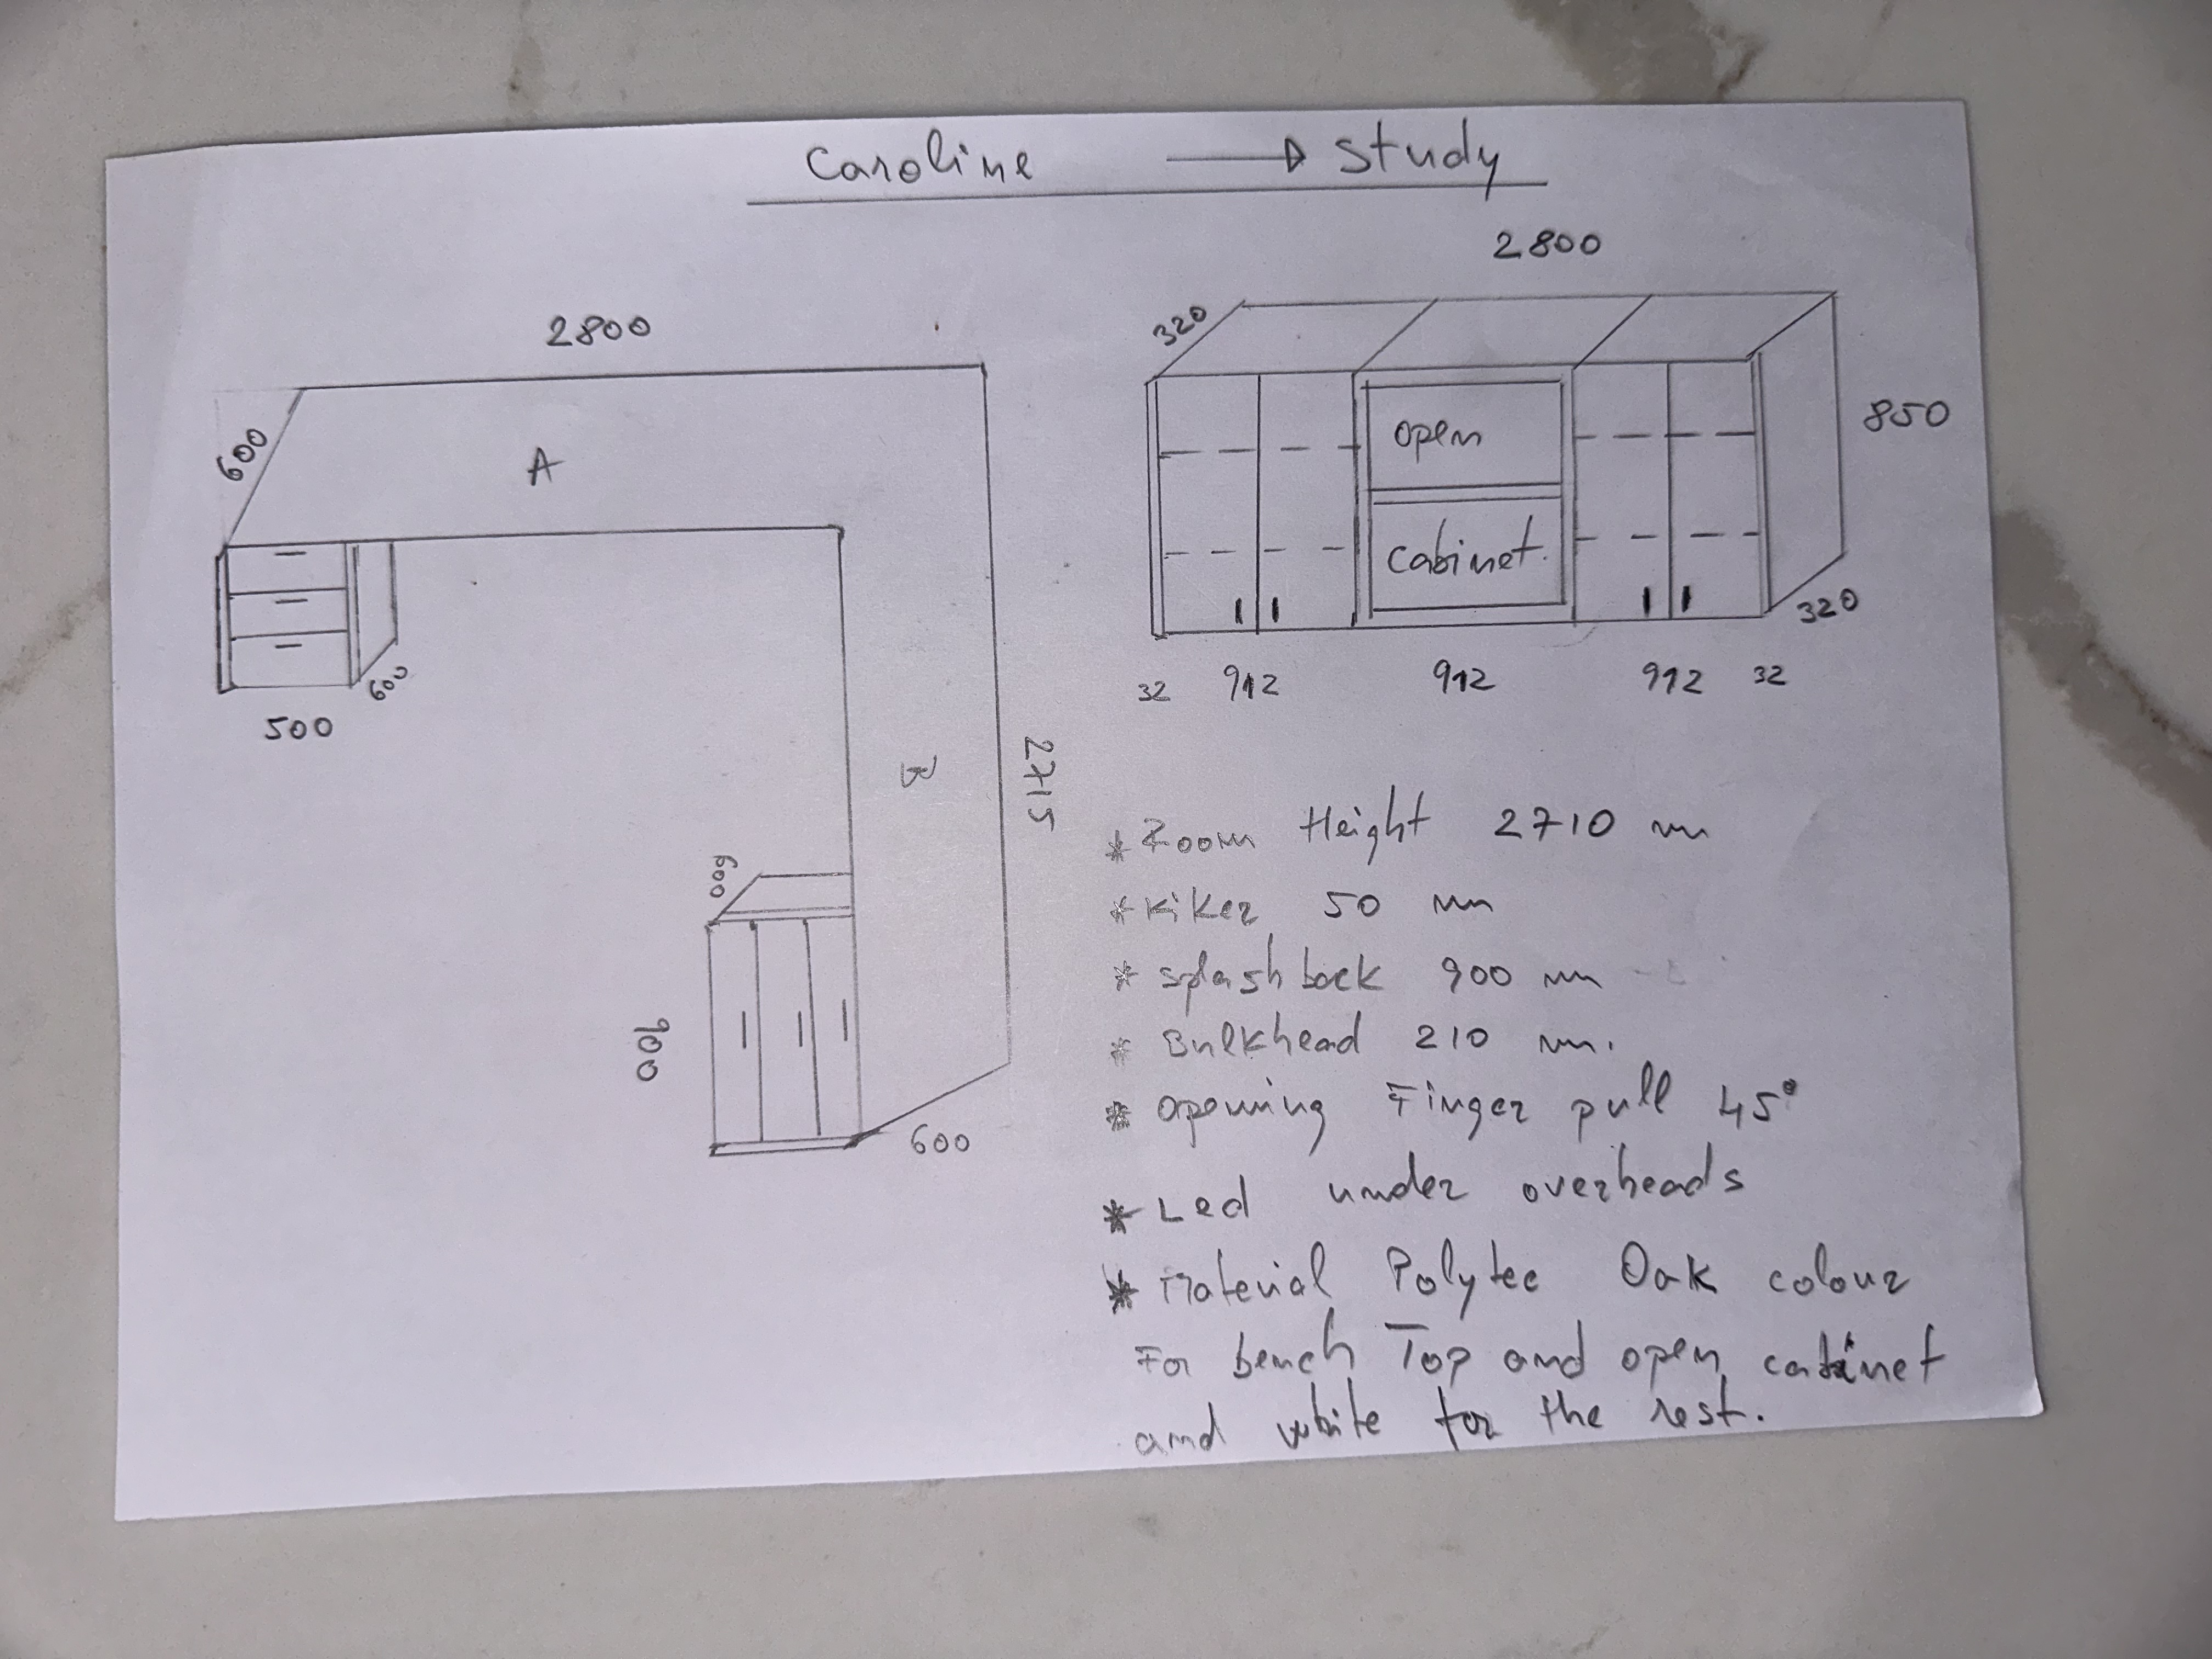 Caroline → study
2800
600
A
500
600
B
2715
600
900
600
2800
320
850
open
cabinet.
320
32 912 912 912 32
* Room Height 2710 mm
* Kiker 50 mm
* splash back 900 mm
* Bulkhead 210 mm.
* opening Finger pull 45°
* Led under overheads
* Material Polytec Oak colour
For bench Top and open cabinet
and white for the rest.